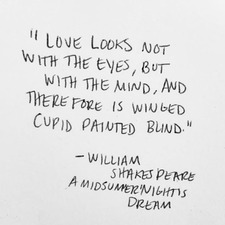 "LOVE LOOKS NOT
WITH THE EYES, BUT
WITH THE MIND, AND
THEREFORE IS WINGED
CUPID PAINTED BLIND."
-WILLIAM
SHAKESPEARE
A MIDSUMMER NIGHT'S
DREAM